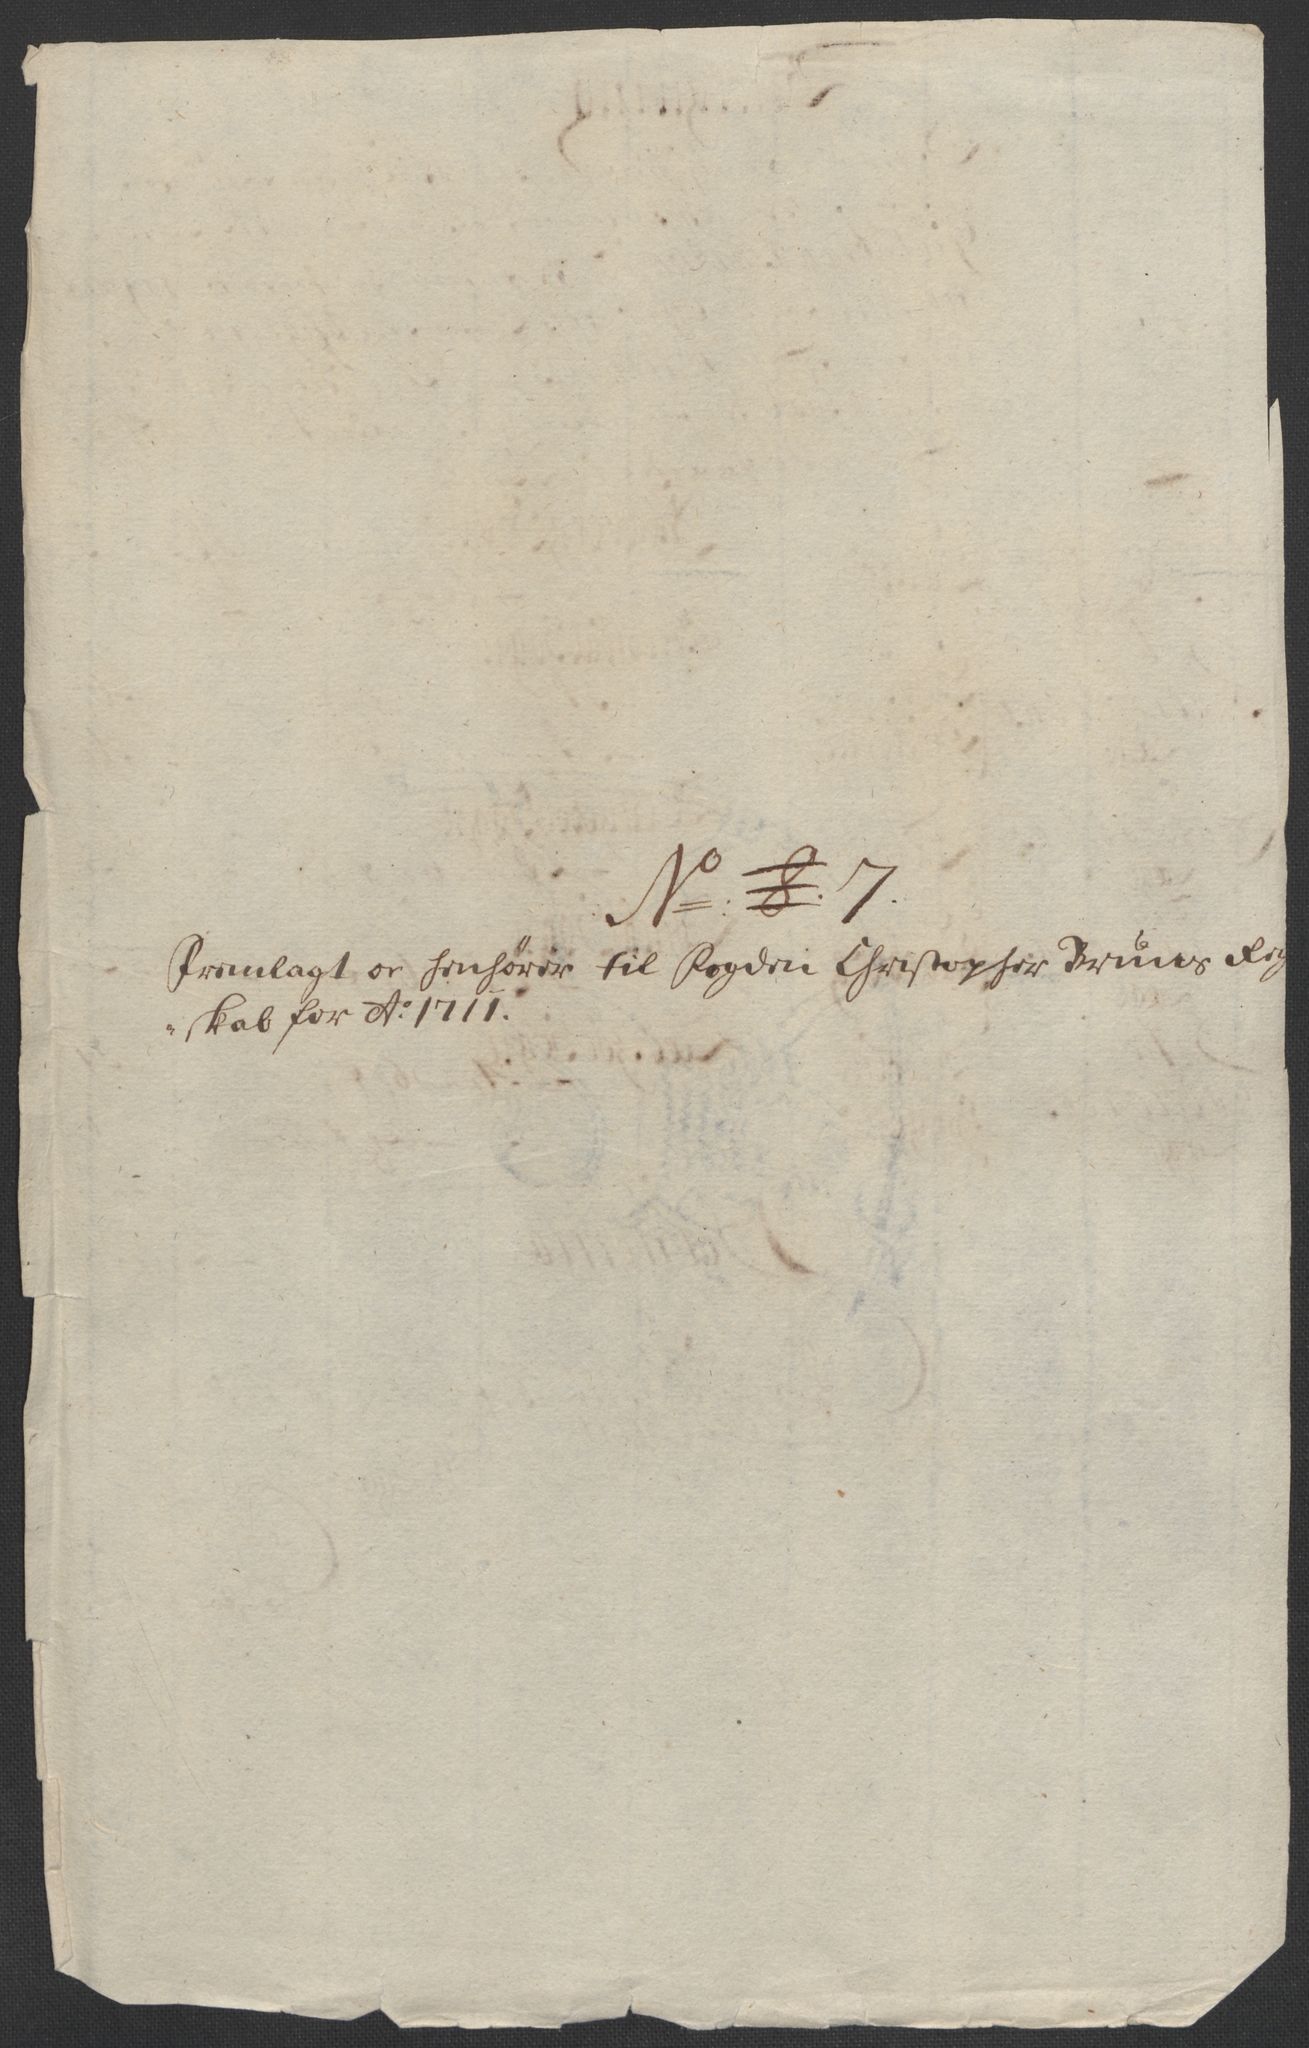 No: 8. 7.
Fremlagt oc henhörer til Fogden Christopher Bruuns Reg
"skab for Ao: 1711.